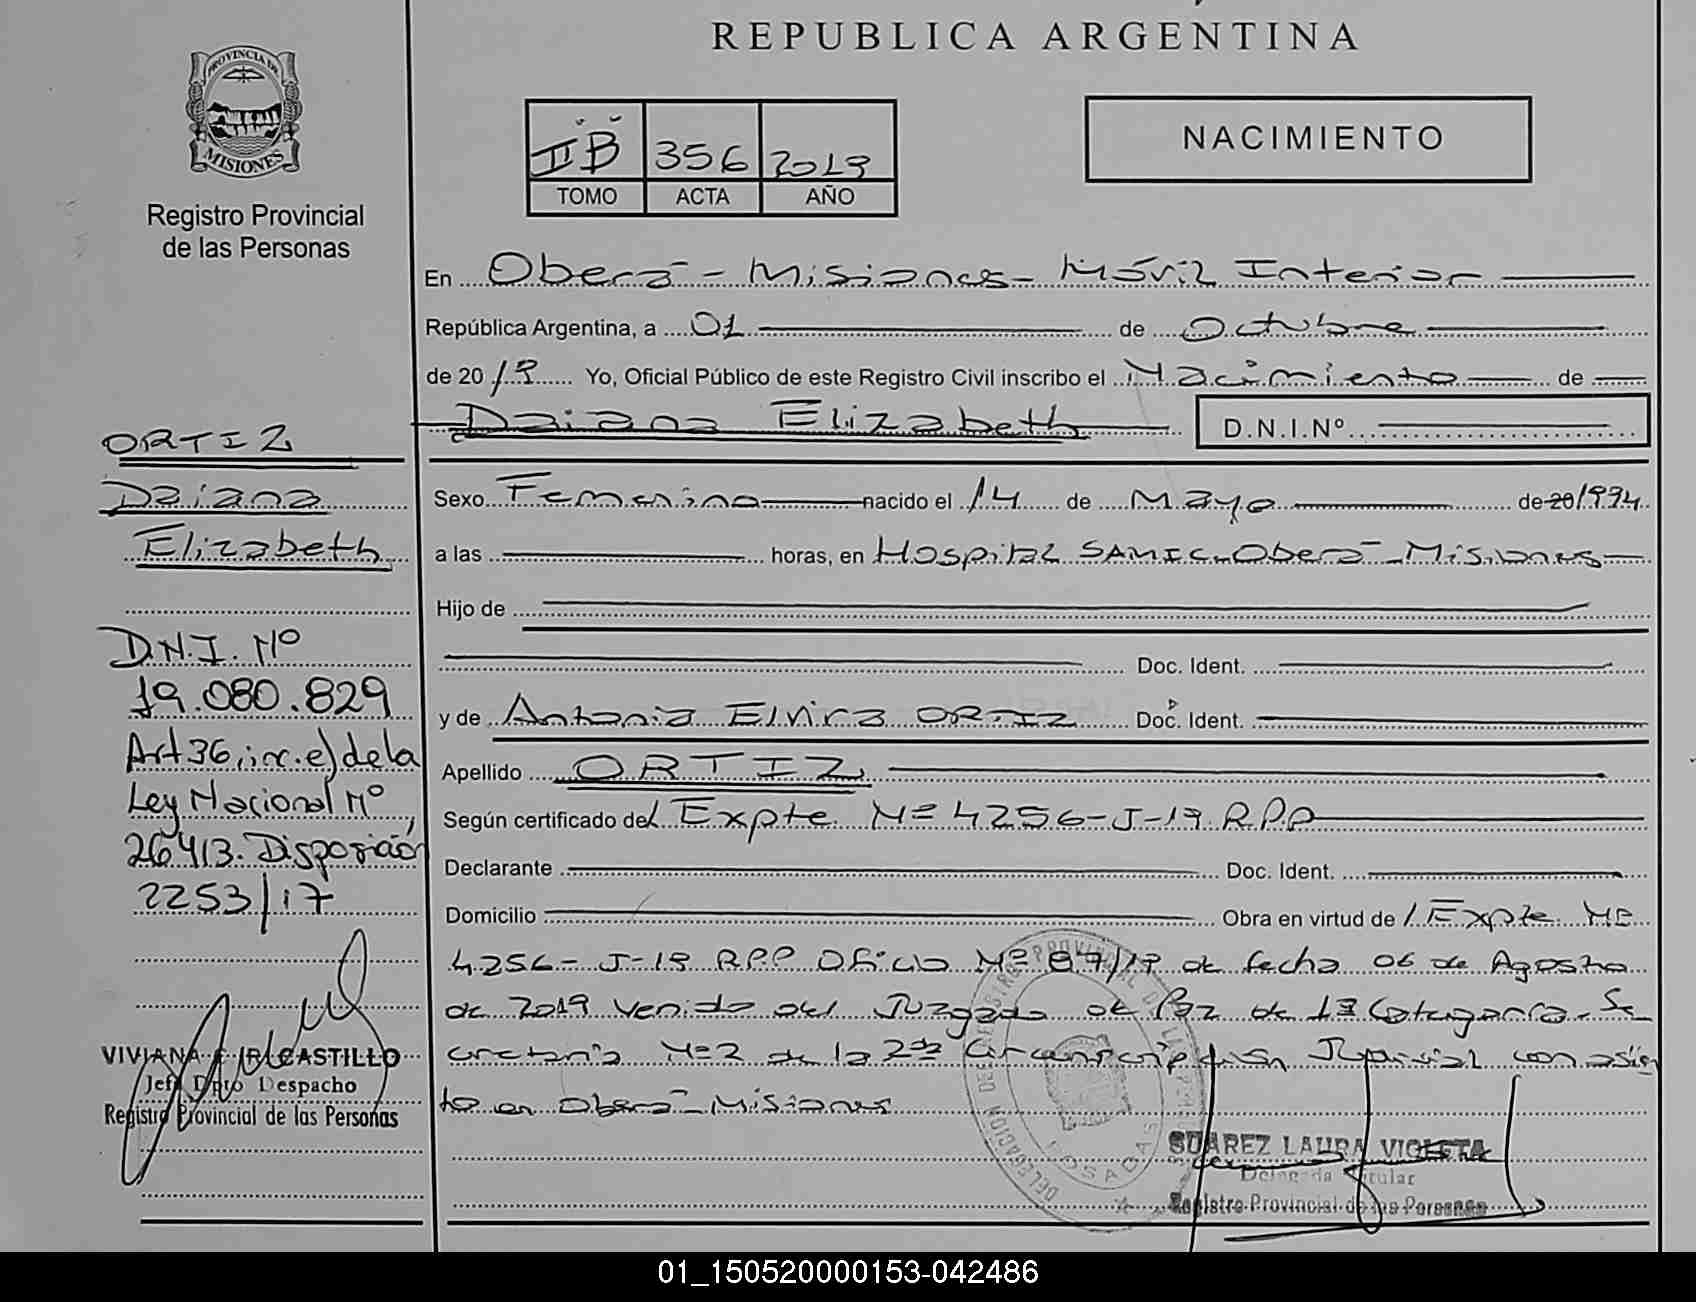 REPUBLICA ARGENTINA
PROVINCIA DE
MISIONES
Registro Provincial
de las Personas
IIB 356 2019
TOMO ACTA AÑO
NACIMIENTO
En Oberá - Misiones - Móvil Interior
República Argentina, a 01 de Octubre
de 2019 Yo, Oficial Público de este Registro Civil inscribo el Nacimiento de
Daiana Elizabeth D.N.I.Nº
Sexo Femenino nacido el 14 de Mayo de 20 1994
a las horas, en Hospital SAMIC - Oberá - Misiones
Hijo de
Doc. Ident.
y de Antonia Elvira ORTIZ Doc. Ident.
Apellido ORTIZ
Según certificado del Expte Nº 4256-J-19 RPP
Declarante Doc. Ident.
Domicilio Obra en virtud de Expte Nº
4256-J-19 RPP Oficio Nº 847/19 de fecha 06 de Agosto
de 2019 venido del Juzgado de Paz de 1ª Categoría - Se
cretaría Nº 2 de la 2da Circunscripción Judicial con asien
to en Oberá - Misiones
ORTIZ
Daiana
Elizabeth
D.N.I. Nº
19.080.829
Art 36, inc. e) de la
Ley Nacional Nº
26413. Disposición
2253/17
VIVIANA CASTILLO
Jefe Dpto Despacho
Registro Provincial de las Personas
POSADAS
SUAREZ LAURA VIOLETA
Delegada Titular
Registro Provincial de las Personas
01_150520000153-042486